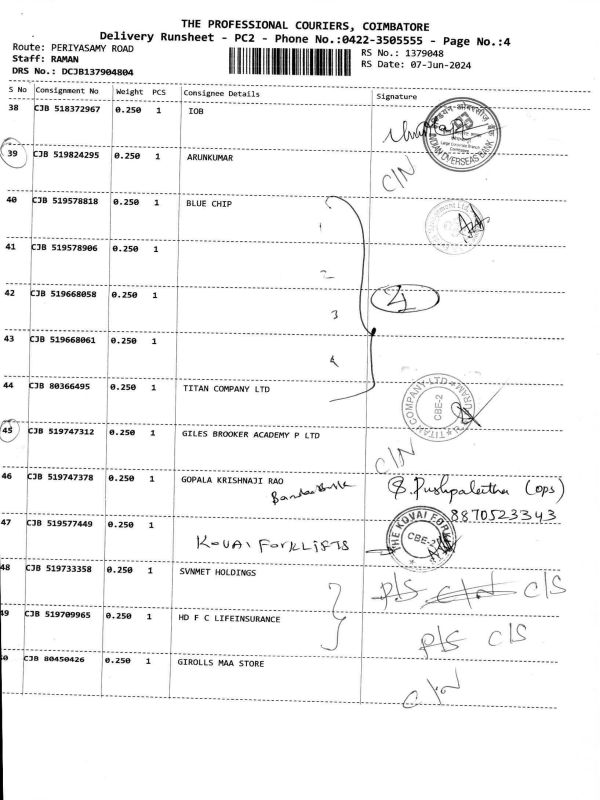 THE PROFESSIONAL COURIERS, COIMBATORE
Delivery Runsheet - PC2 - Phone No.:0422-3505555 - Page No.:4
Route: PERIYASAMY ROAD
Staff: RAMAN
DRS No.: DCJB137904804
RS No.: 1379048
RS Date: 07-Jun-2024
S No Consignment No Weight PCS Consignee Details Signature
38 CJB 518372967 0.250 1 IOB
INDIAN OVERSEAS BANK
39 CJB 519824295 0.250 1 ARUNKUMAR C/N
40 CJB 519578818 0.250 1 BLUE CHIP
1
41 CJB 519578906 0.250 1
2
42 CJB 519668058 0.250 1 4
3
43 CJB 519668061 0.250 1
4
44 CJB 80366495 0.250 1 TITAN COMPANY LTD
TITAN COMPANY LTD CBE-2
45 CJB 519747312 0.250 1 GILES BROOKER ACADEMY P LTD C/N
46 CJB 519747378 0.250 1 GOPALA KRISHNAJI RAO S. Pushpalatha (ops)
8870523343
47 CJB 519577449 0.250 1 KOVAI FORKLISTS
THE KOVAI FORK CBE-2
48 CJB 519733358 0.250 1 SVNMET HOLDINGS P/S C/N C/S
49 CJB 519709965 0.250 1 HD F C LIFEINSURANCE P/S C/S
50 CJB 80450426 0.250 1 GIROLLS MAA STORE C/N